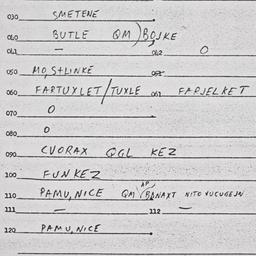 030 SMETENE
040 BUTLE QM) BOJKE
041 — 042 O
050 MOSTLINKE 052
060 FARTUXLET/TUXLE 061 FARJELKET
070 O
080 O
090 CVORAX QGL KEZ
100 FUNKEZ
110 PAMU,NICE QM (BANAXT NITO VUCUGEJN
111 — 112 —
120 PAMU,NICE